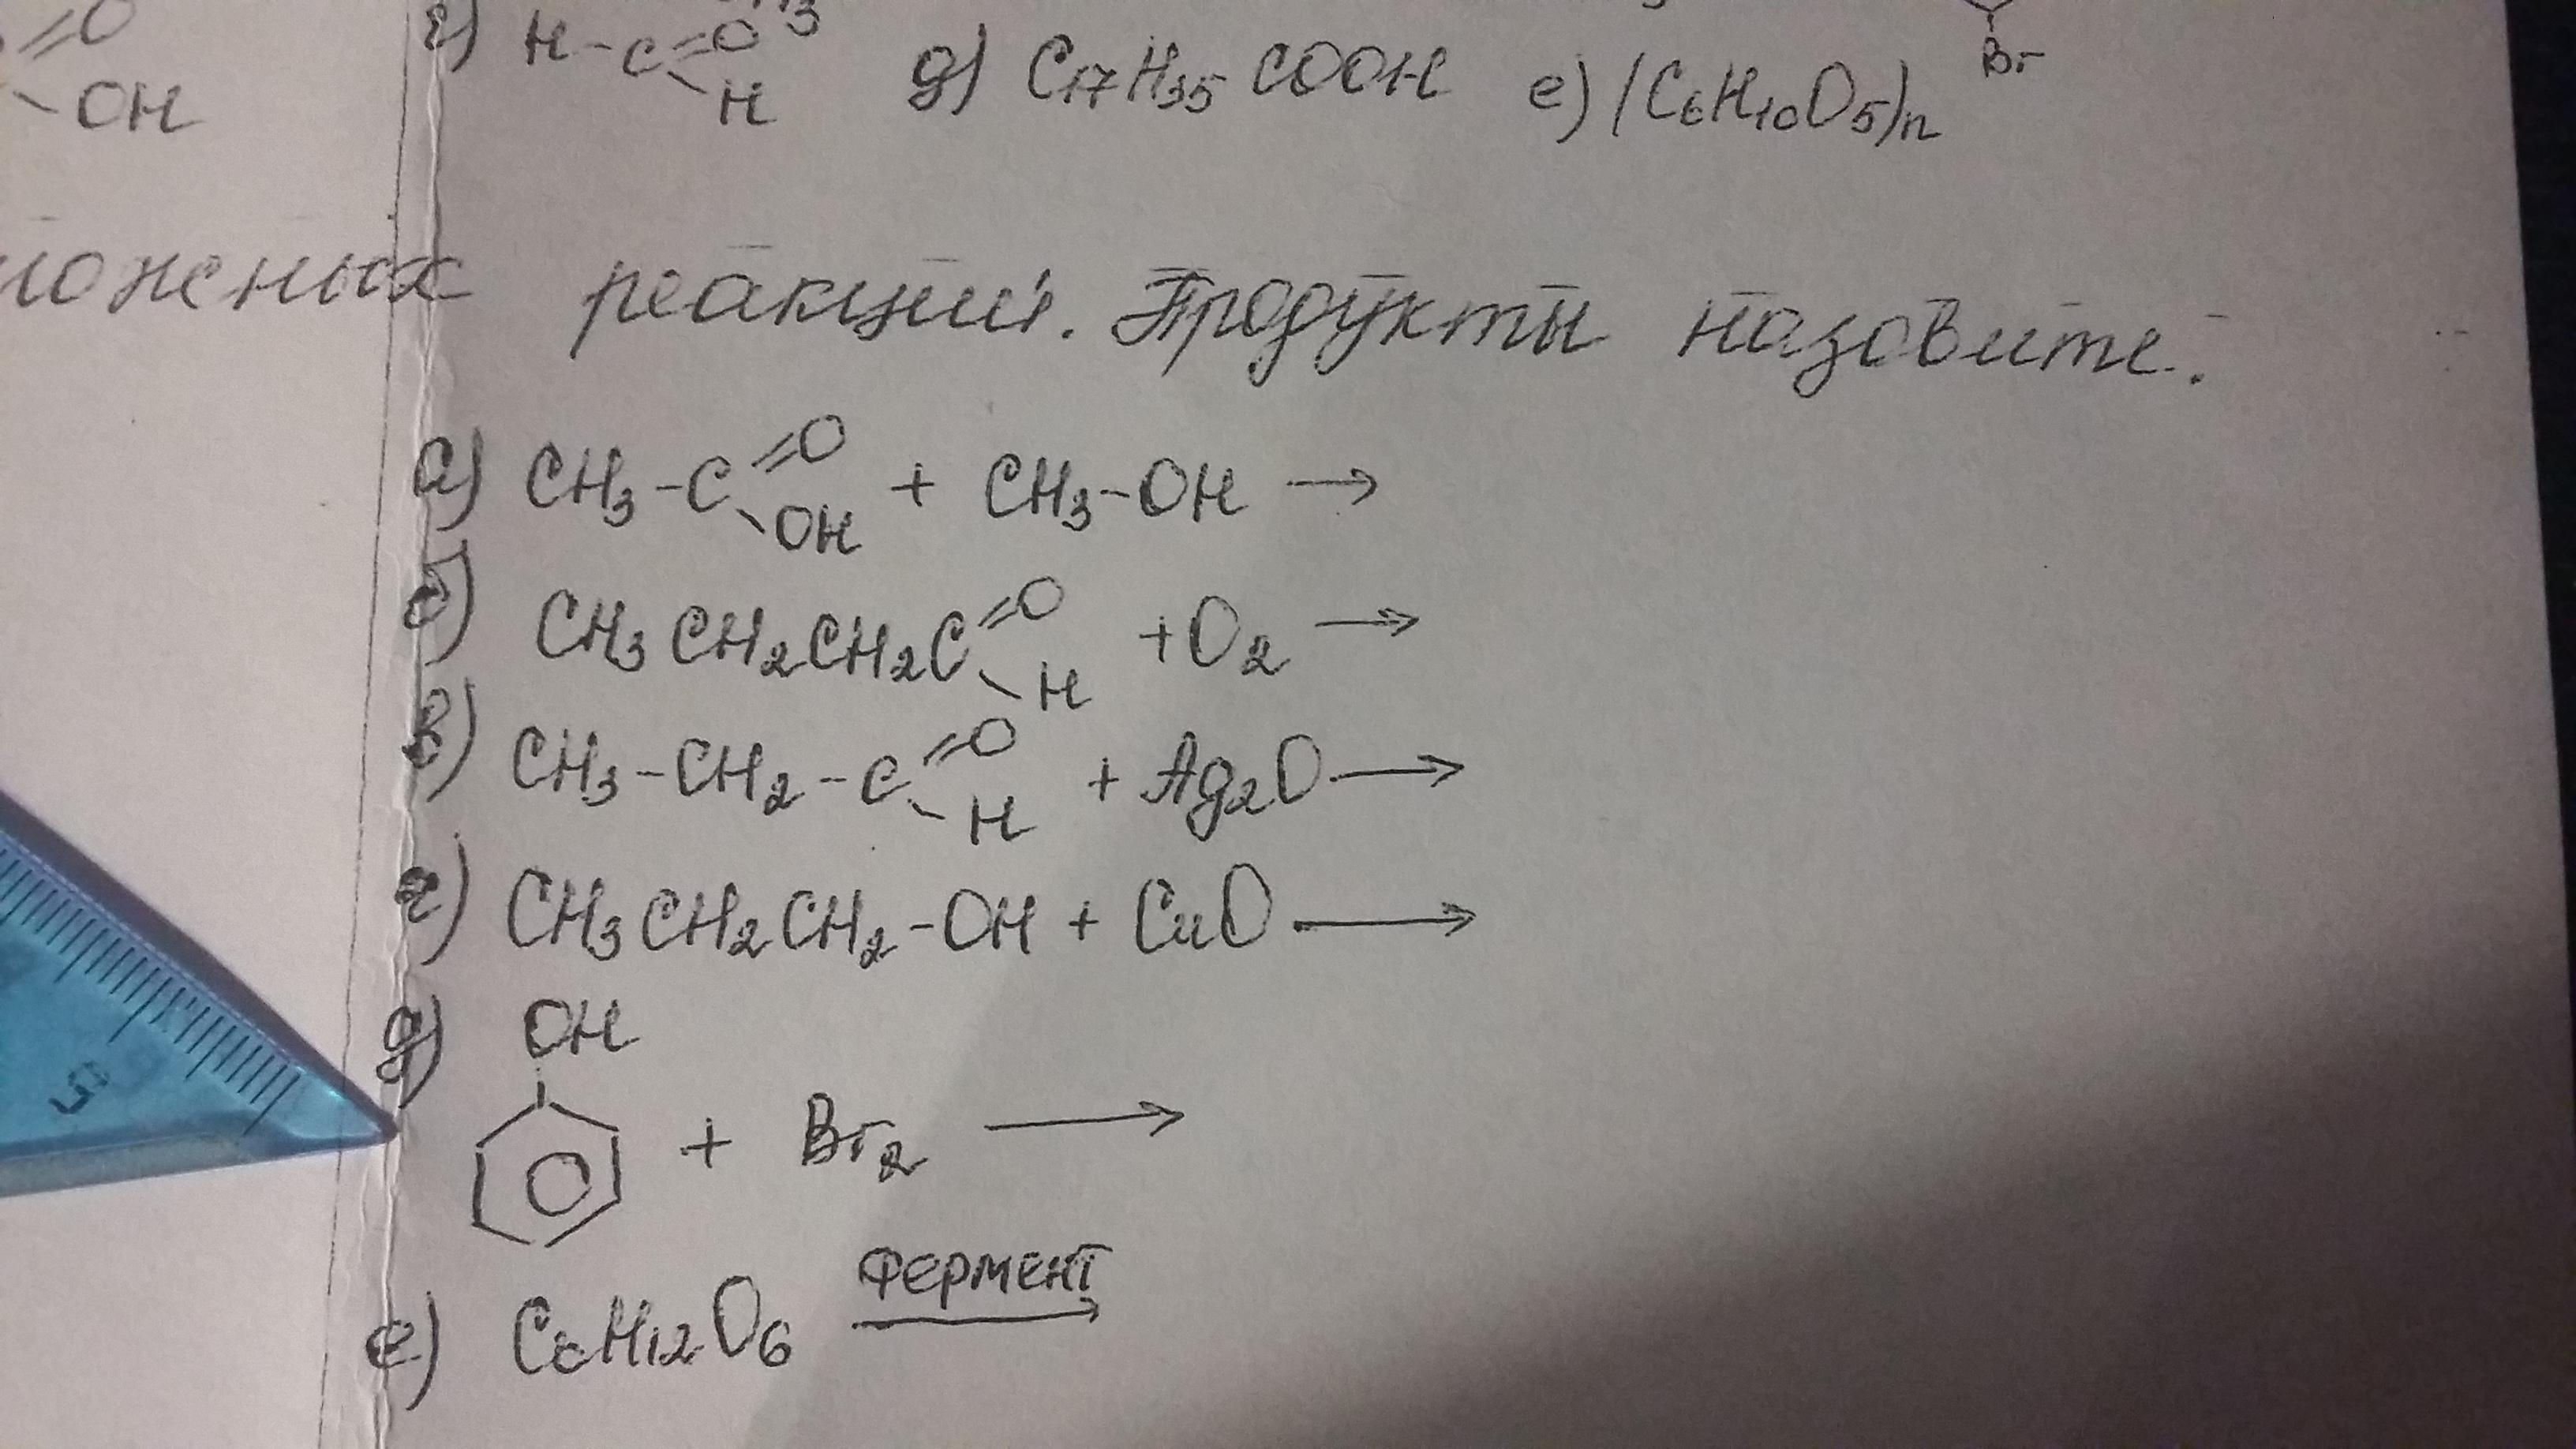 =O
-OH
г) H-C=O H д) C₁₇H₃₅COOH е) (C₆H₁₀O₅)n
Br
реакций. Продукты назовите.
а) CH₃-C=O OH + CH₃-OH →
б) CH₃CH₂CH₂C=O H + O₂ →
в) CH₃-CH₂-C=O H + Ag₂O →
г) CH₃CH₂CH₂-OH + CuO →
д) OH
+ Br₂ →
е) C₆H₁₂O₆ фермент →
5